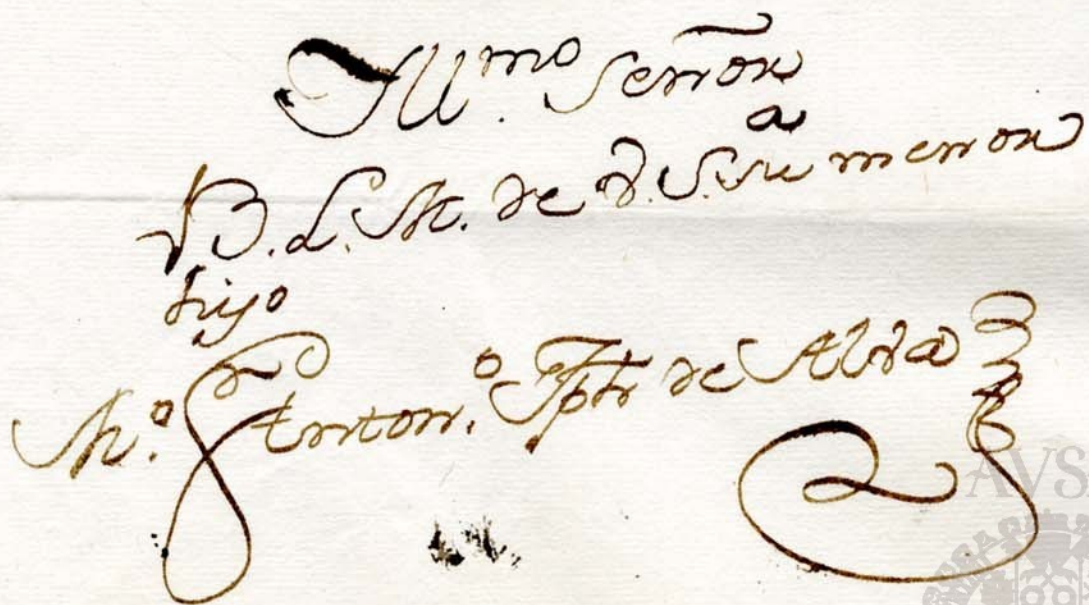 Yll.mo Señor
a
B. L. M. de V. S. su menor
hijo
M.o Anton.o Jph de Alva
AVS